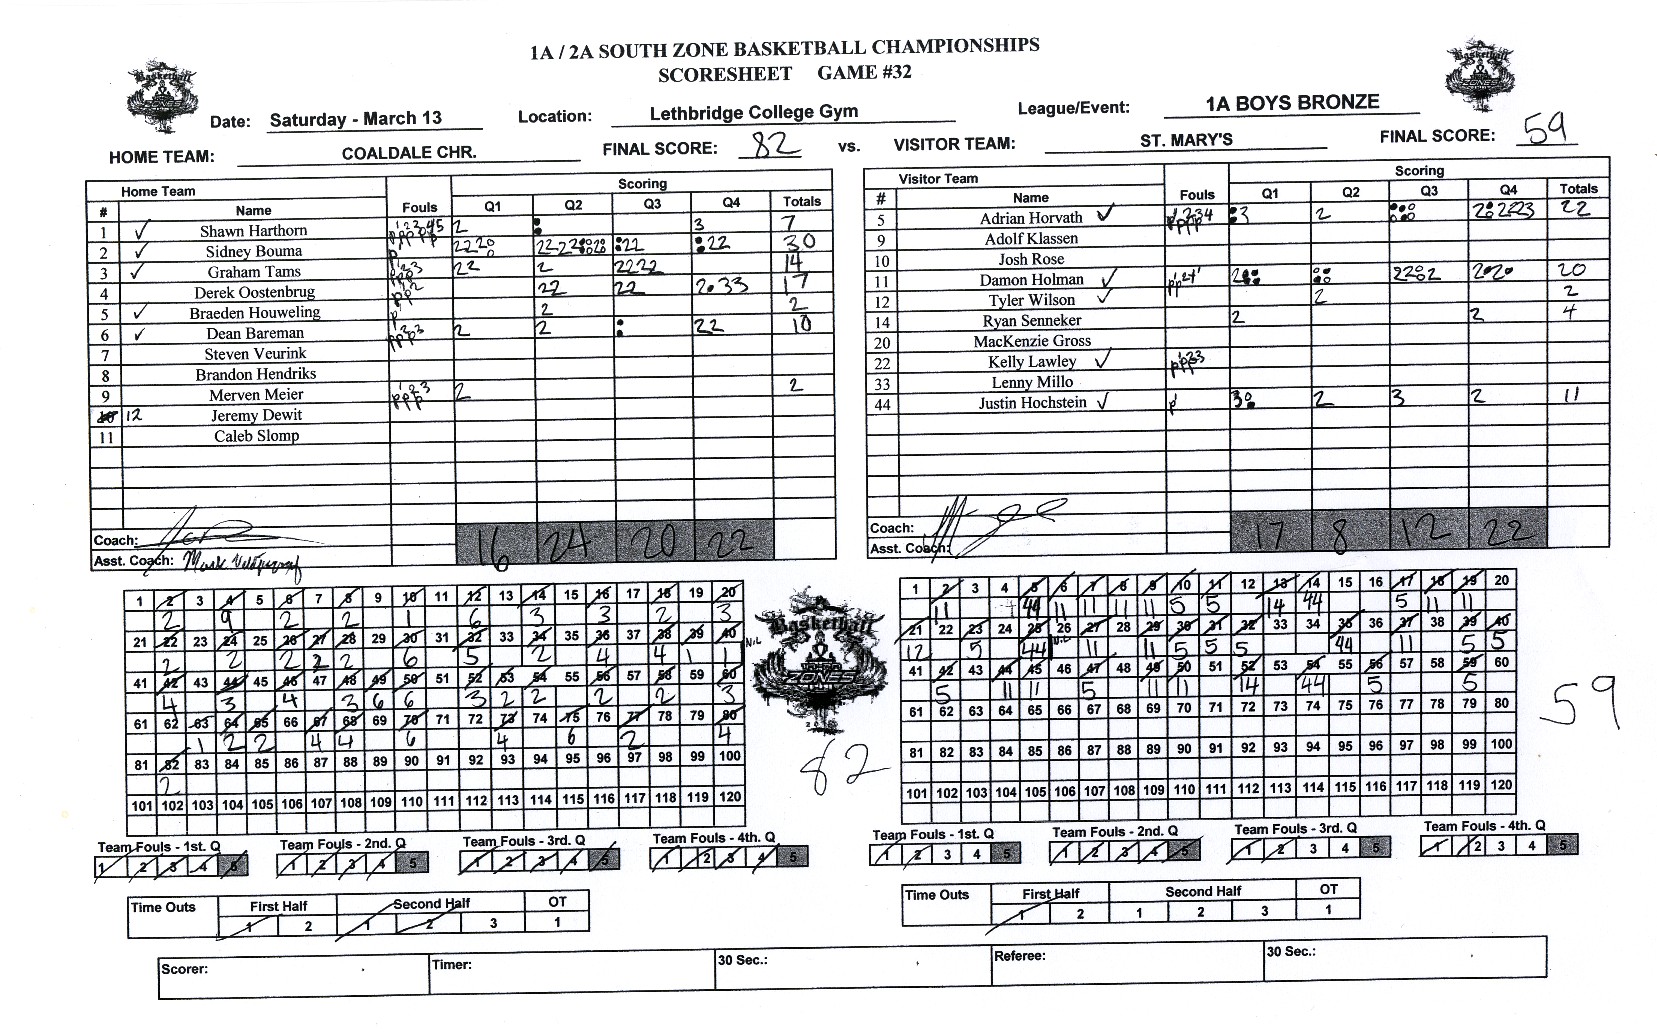 1A / 2A SOUTH ZONE BASKETBALL CHAMPIONSHIPS
SCORESHEET GAME #32
Date: Saturday - March 13 Location: Lethbridge College Gym League/Event: 1A BOYS BRONZE
HOME TEAM: COALDALE CHR. FINAL SCORE: 82 vs. VISITOR TEAM: ST. MARY'S FINAL SCORE: 59
Home Team Scoring
# Name Fouls Q1 Q2 Q3 Q4 Totals
1 Shawn Harthorn 2 3 7
2 Sidney Bouma 30
3 Graham Tams 22 2 2222 14
4 Derek Oostenbrug 22 22 17
5 Braeden Houweling 2 2
6 Dean Bareman 2 2 22 10
7 Steven Veurink
8 Brandon Hendriks
9 Merven Meier 2 2
12 Jeremy Dewit
11 Caleb Slomp
Coach: 16 24 20 22
Asst. Coach: Mark
Visitor Team Scoring
# Name Fouls Q1 Q2 Q3 Q4 Totals
5 Adrian Horvath 3 2 22
9 Adolf Klassen
10 Josh Rose
11 Damon Holman 20
12 Tyler Wilson 2 2
14 Ryan Senneker 2 2 4
20 MacKenzie Gross
22 Kelly Lawley
33 Lenny Millo
44 Justin Hochstein 3 2 3 2 11
Coach: 17 8 12 22
Asst. Coach:
1 2 3 4 5 6 7 8 9 10 11 12 13 14 15 16 17 18 19 20
2 9 2 2 1 6 3 3 2 3
21 22 23 24 25 26 27 28 29 30 31 32 33 34 35 36 37 38 39 40
2 2 2 2 2 6 5 2 4 4 1 1
41 42 43 44 45 46 47 48 49 50 51 52 53 54 55 56 57 58 59 60
4 3 4 3 6 6 3 2 2 2 2 3
61 62 63 64 65 66 67 68 69 70 71 72 73 74 75 76 77 78 79 80
1 2 2 4 4 6 4 6 2 4
81 82 83 84 85 86 87 88 89 90 91 92 93 94 95 96 97 98 99 100
2
101 102 103 104 105 106 107 108 109 110 111 112 113 114 115 116 117 118 119 120
82
Basketball
ZONES
1 2 3 4 5 6 7 8 9 10 11 12 13 14 15 16 17 18 19 20
11 44 11 11 11 11 5 5 14 44 5 11 11
21 22 23 24 25 26 27 28 29 30 31 32 33 34 35 36 37 38 39 40
12 5 44 11 11 5 5 5 44 11 5 5
41 42 43 44 45 46 47 48 49 50 51 52 53 54 55 56 57 58 59 60
5 11 11 5 11 11 14 44 5 5
61 62 63 64 65 66 67 68 69 70 71 72 73 74 75 76 77 78 79 80
81 82 83 84 85 86 87 88 89 90 91 92 93 94 95 96 97 98 99 100
101 102 103 104 105 106 107 108 109 110 111 112 113 114 115 116 117 118 119 120
59
Team Fouls - 1st. Q Team Fouls - 2nd. Q Team Fouls - 3rd. Q Team Fouls - 4th. Q
1 2 3 4 5 1 2 3 4 5 1 2 3 4 5 1 2 3 4 5
Team Fouls - 1st. Q Team Fouls - 2nd. Q Team Fouls - 3rd. Q Team Fouls - 4th. Q
1 2 3 4 5 1 2 3 4 5 1 2 3 4 5 1 2 3 4 5
Time Outs First Half Second Half OT
1 2 1 2 3 1
Time Outs First Half Second Half OT
1 2 1 2 3 1
Scorer: Timer: 30 Sec.: Referee: 30 Sec.: